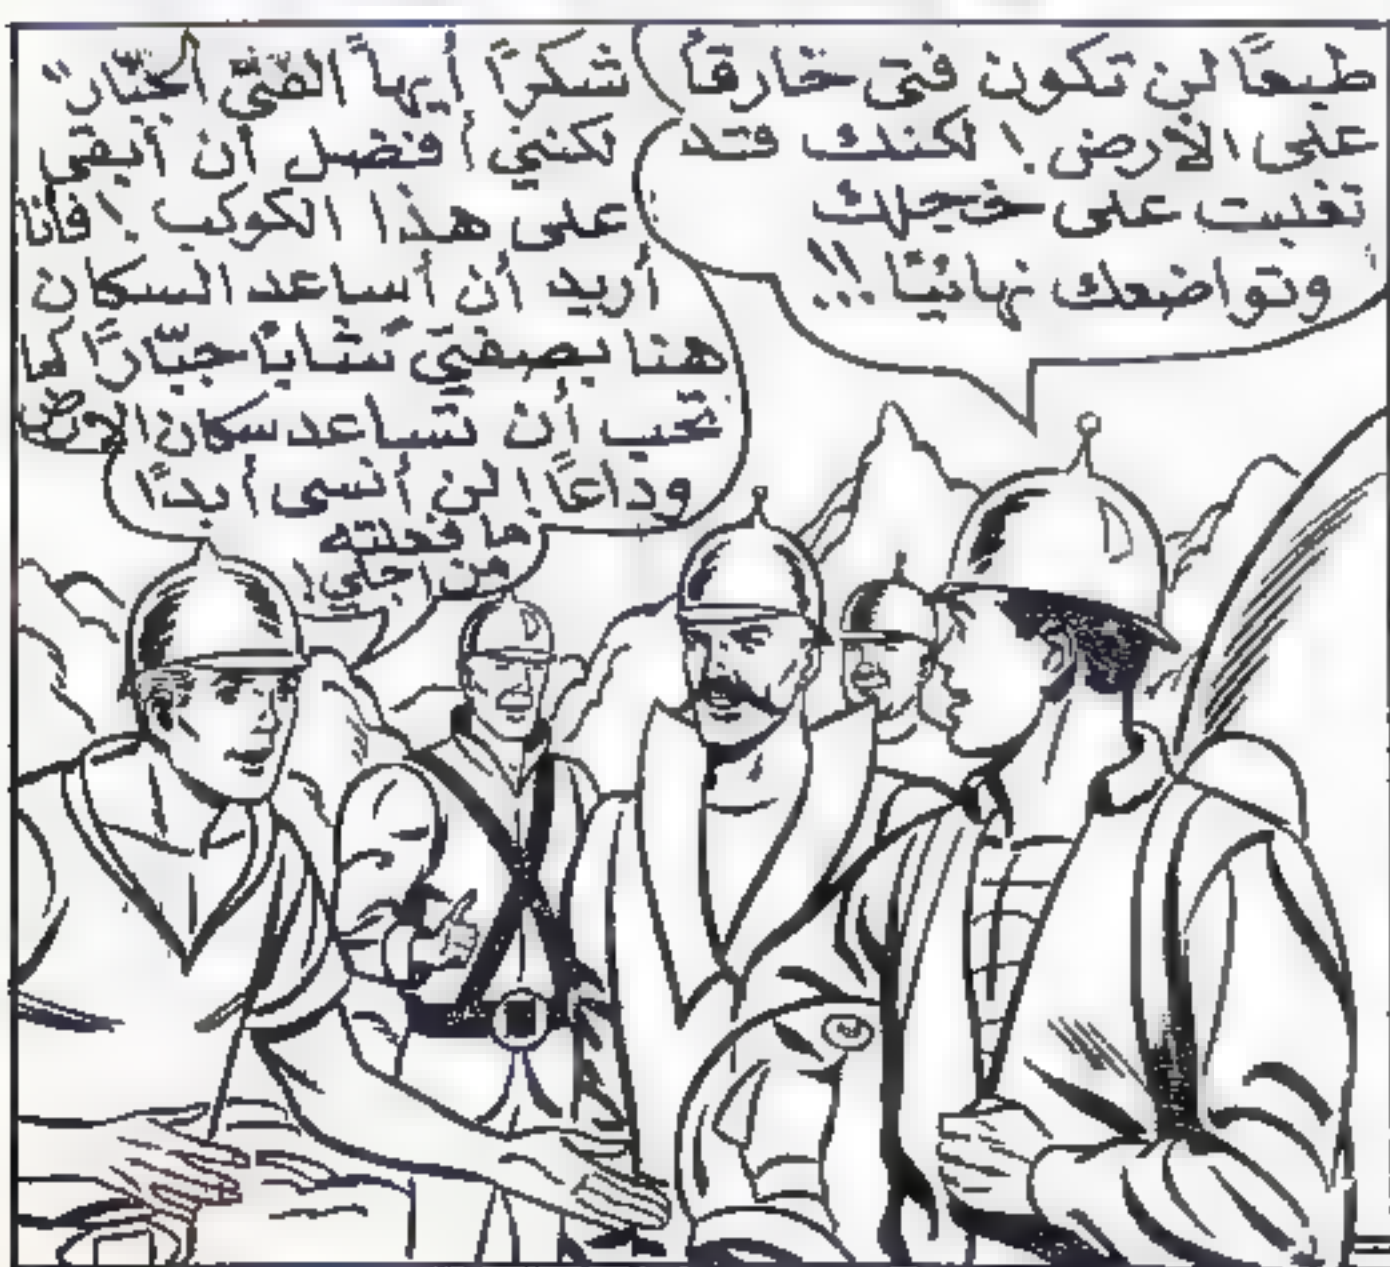 طبعًا لن تكون فتى خارقًا
على الأرض! لكنك قد
تغلبت على خجلك
وتواضعك نهائيًا!!!
شكرًا أيها الفتى الجبّار
لكنني أفضل أن أبقى
على هذا الكوكب! فأنا
أريد أن أساعد السكان
هنا بصفتي شابًا جبّارًا كما
تحب أن تساعد سكان الأرض
وداعًا! لن أنسى أبدًا
ما فعلته
من أجلي!